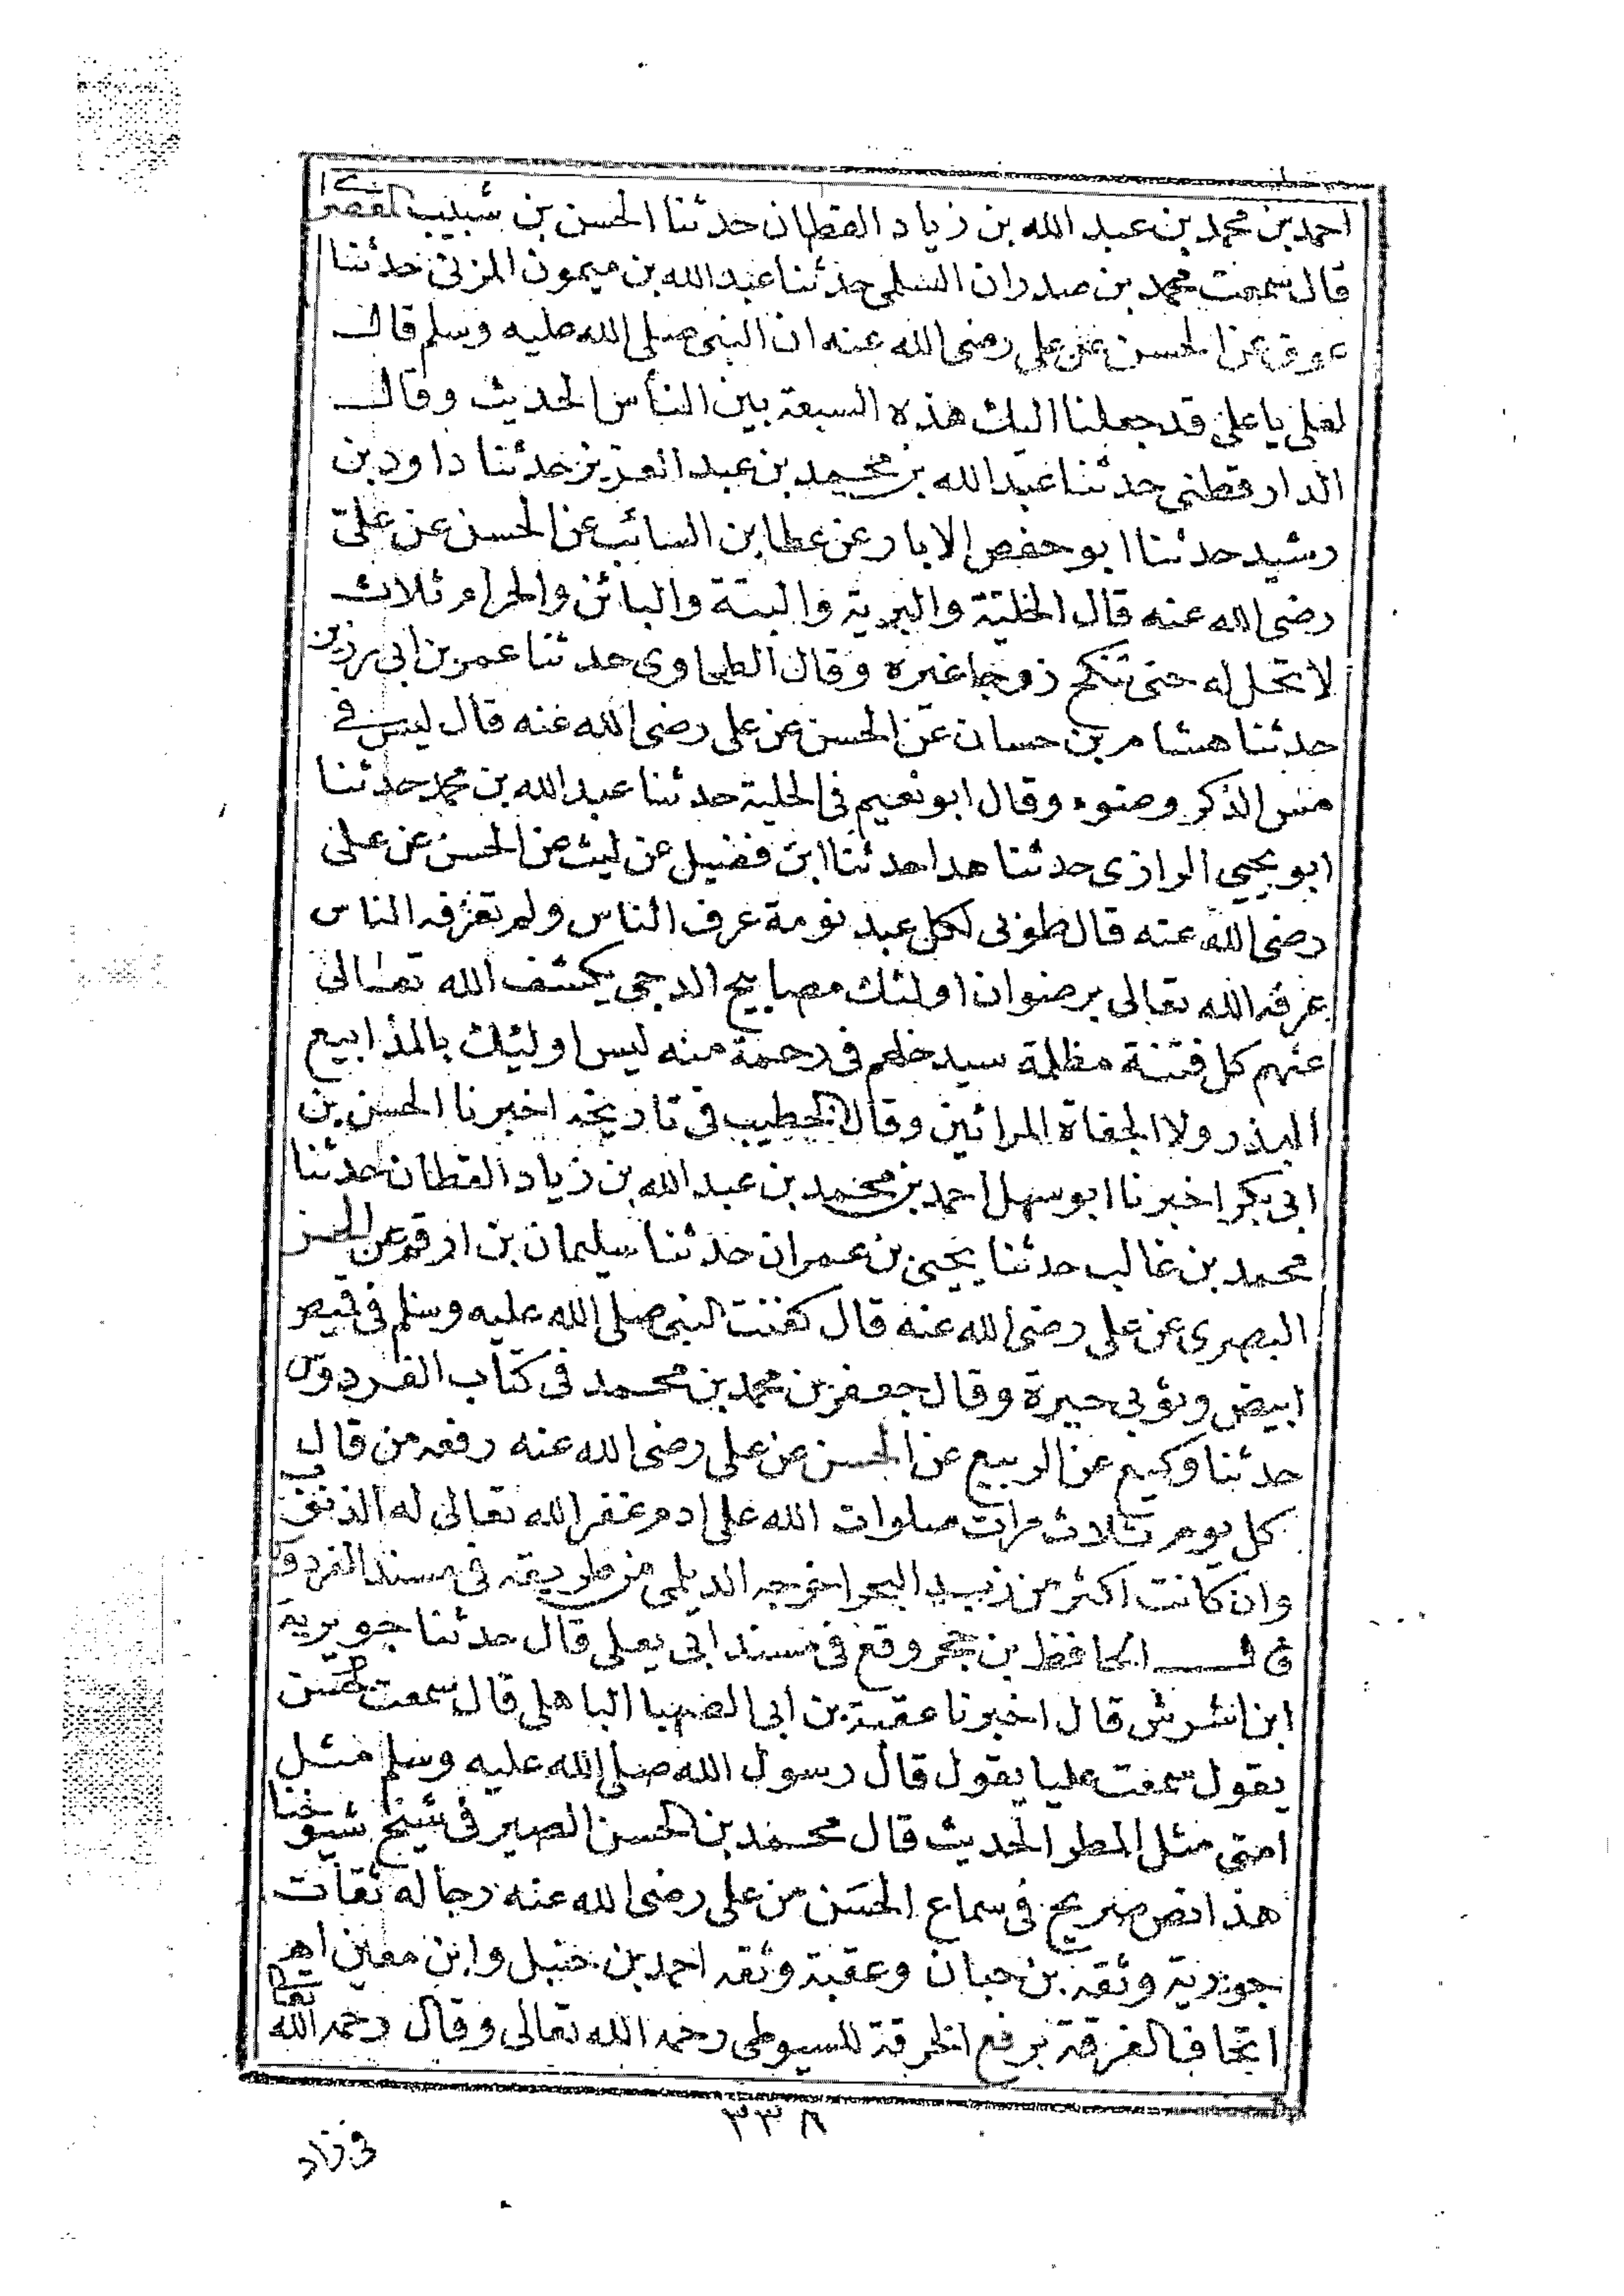 احمد بن محمد بن عبد الله بن زياد القطان حدثنا الحسن بن شبيب
قال سمعت محمد بن صدران السلمى حدثنا عبد الله بن ميمون المزنى حدثنا
عوف عن الحسن عن على رضى الله عنه ان النبى صلى الله عليه وسلم قال
لعلى يا على قد جعلنا اليك هذه السبعة بين الناس الحديث وقال
الدار قطنى حدثنا عبد الله بن محمد بن عبد العزيز حدثنا داود بن
رشيد حدثنا ابو حفص الابار عن عطا بن السائب عن الحسن عن على
رضى الله عنه قال الخلية والبرية والبتة والبائن والحرام ثلاث
لا تحل له حتى تنكح زوجا غيره وقال الطحاوى حدثنا عمر بن ابى رزين
حدثنا هشام بن حسان عن الحسن عن على رضى الله عنه قال ليس فى
مس الذكر وضوء وقال ابو نعيم فى الحلية حدثنا عبد الله بن محمد حدثنا
ابو يحيى الرازى حدثنا هدا حدثنا ابن فضيل عن ليث عن الحسن عن على
رضى الله عنه قال طوبى لكل عبد نومة عرف الناس ولم تعرفه الناس
عرفه الله تعالى برضوان اولئك مصابيح الدجى يكشف الله تعالى
عنهم كل فتنة مظلة سيدخلهم فى رحمة منه ليس اوليك بالمذابيع
البذر ولا الجفاة المرائين وقال الخطيب فى تاريخه اخبرنا الحسن بن
ابى بكر اخبرنا ابو سهل احمد بن محمد بن عبد الله بن زياد القطان حدثنا
محمد بن غالب حدثنا يحيى بن عمران حدثنا سليمان بن ارقم عن الحسن
البصرى عن على رضى الله عنه قال كفنت النبى صلى الله عليه وسلم فى قميص
ابيض وثوبى حبرة وقال جعفر بن محمد بن محمد فى كتاب الفردوس
حدثنا وكيع عن الربيع عن الحسن عن على رضى الله عنه رفعه من قال
كل يوم ثلاث مرات صلوات الله على ادم غفر الله تعالى له الذنوب
وان كانت اكثر من زبد البحر اخرجه الديلمى من طريقه فى مسند الفردوس
قال الحافظ بن حجر وقع فى مسند ابى يعلى قال حدثنا جويرية
ابن اشرش قال اخبرنا عقبة بن ابى الصهبا الباهلى قال سمعت الحسن
يقول سمعت عليا يقول قال رسول الله صلى الله عليه وسلم مثل
امتى مثل المطر الحديث قال محمد بن الحسن الصيرفى شيخ شيوخنا
هذا نص صريح فى سماع الحسن من على رضى الله عنه رجاله ثقات
جويرية وثقه بن حبان وعقبة وثقه احمد بن حنبل وابن معين اهـ
اتحاف الفرقة برفع الخرقة للسيوطى رحمه الله تعالى وقال رحمه الله تعالى
٣٣٨